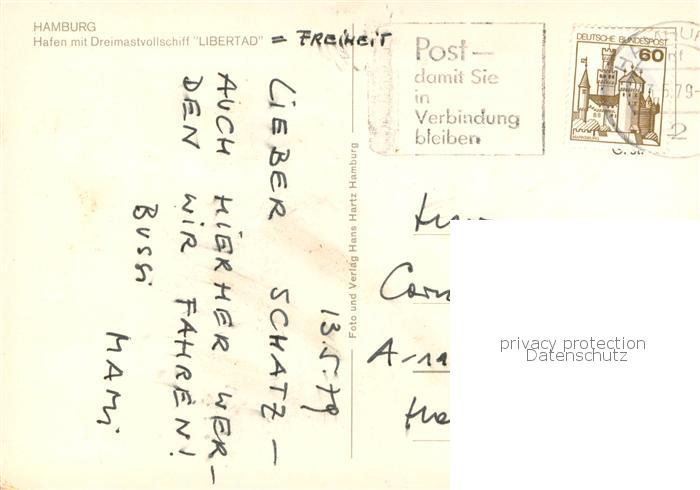 HAMBURG
Hafen mit Dreimastvollschiff "LIBERTAD" = FREIHEIT
13.5.79
LIEBER SCHATZ –
AUCH HIERHER WER-
DEN WIR FAHREN!
BUSSI
MAMI
Foto und Verlag Hans Hartz Hamburg
Post –
damit Sie
in
Verbindung
bleiben
DEUTSCHE BUNDESPOST
60
5.79
2
A-
privacy protection
Datenschutz